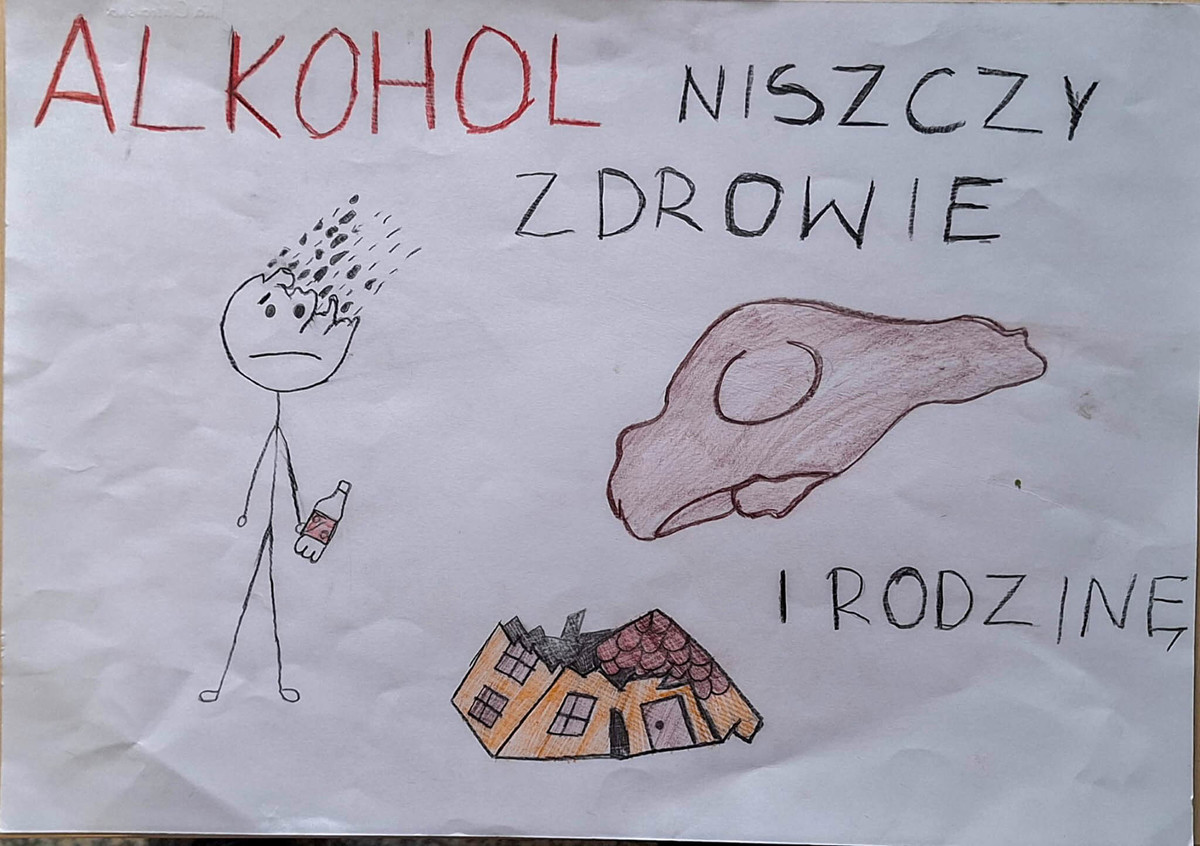 ALKOHOL NISZCZY
ZDROWIE
I RODZINĘ